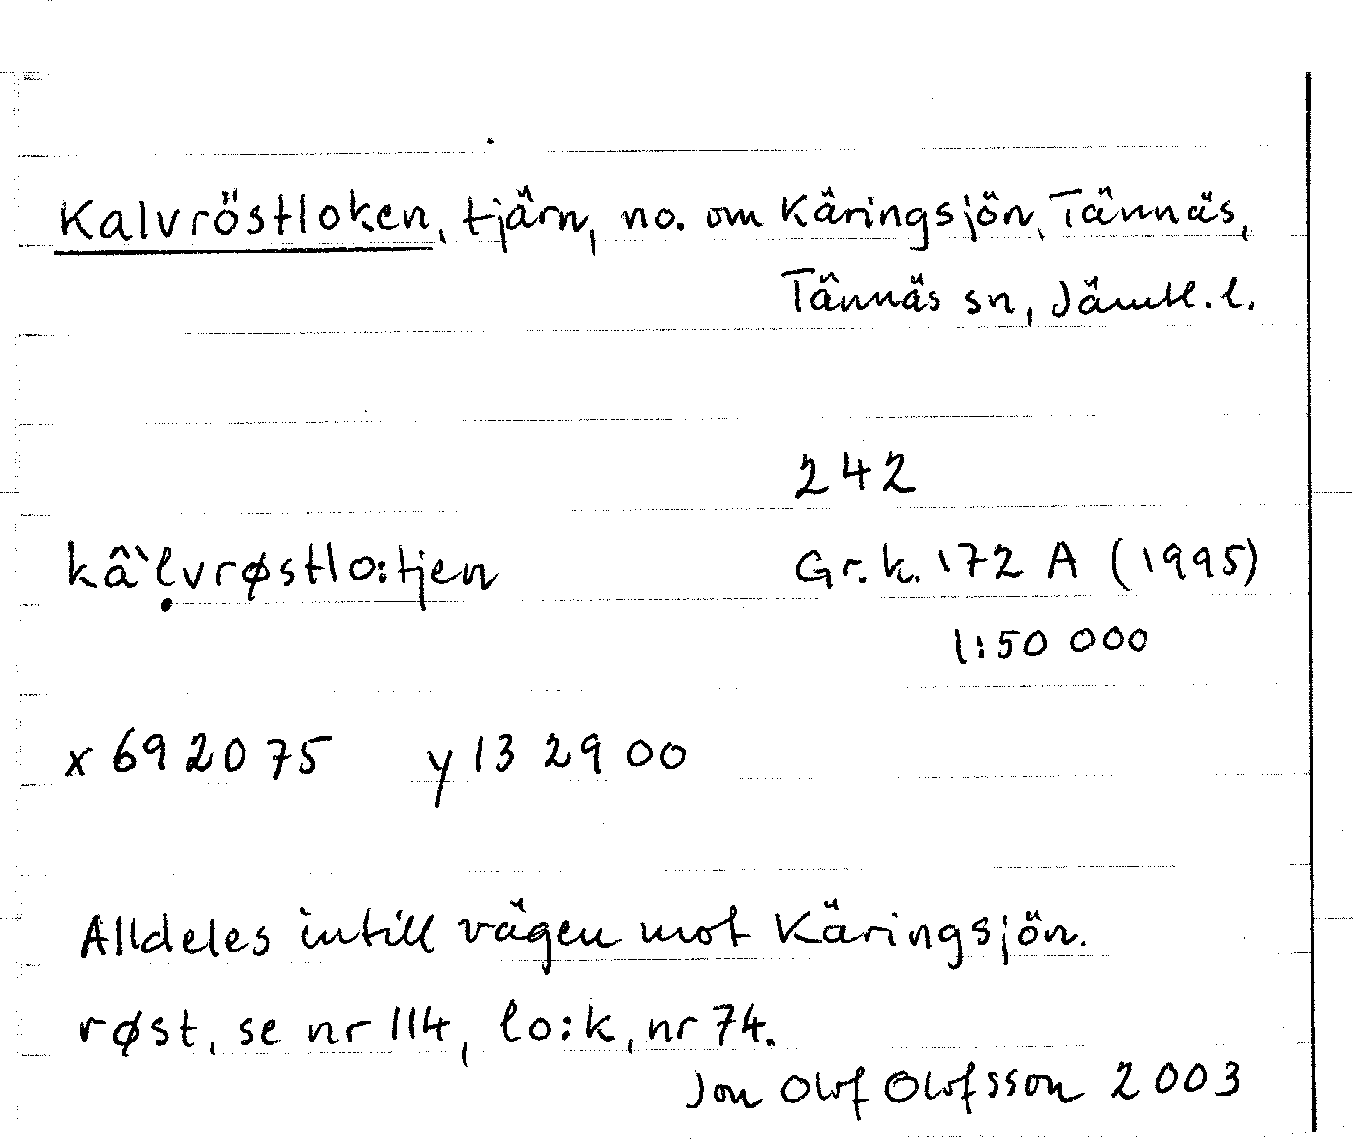 Kalvröstloken, tjärn, no. om Käringsjön, Tännäs,
Tännäs sn, Jämtl. l.
242
kâ`ḷvrøstlo:tjen Gr. k. 172 A (1995)
1:50 000
x 692075 y 13 29 00
Alldeles intill vägen mot Käringsjön.
røst, se nr 114, lo:k, nr 74.
Jon Olof Olofsson 2003